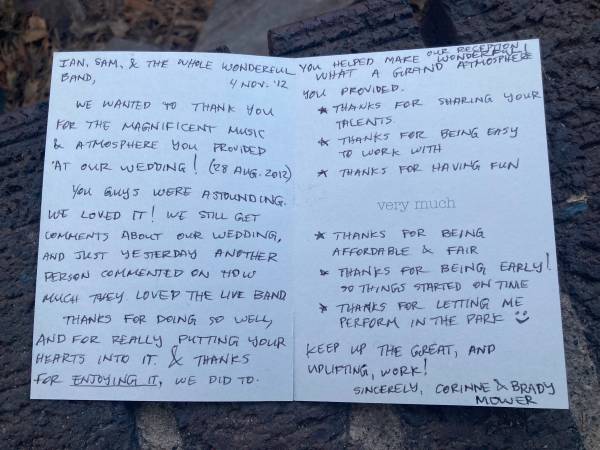 IAN, SAM, & THE WHOLE WONDERFUL
BAND,
4 NOV. '12
WE WANTED TO THANK YOU
FOR THE MAGNIFICENT MUSIC
& ATMOSPHERE YOU PROVIDED
AT OUR WEDDING! (28 AUG. 2012)
YOU GUYS WERE ASTOUNDING.
WE LOVED IT! WE STILL GET
COMMENTS ABOUT OUR WEDDING,
AND JUST YESTERDAY ANOTHER
PERSON COMMENTED ON HOW
MUCH THEY LOVED THE LIVE BAND.
THANKS FOR DOING SO WELL,
AND FOR REALLY PUTTING YOUR
HEARTS INTO IT. & THANKS
FOR ENJOYING IT, WE DID TO.
YOU HELPED MAKE OUR RECEPTION WONDERFUL!
WHAT A GRAND ATMOSPHERE
YOU PROVIDED.
★ THANKS FOR SHARING YOUR
TALENTS.
★ THANKS FOR BEING EASY
TO WORK WITH
★ THANKS FOR HAVING FUN
very much
★ THANKS FOR BEING
AFFORDABLE & FAIR
★ THANKS FOR BEING EARLY!
SO THINGS STARTED ON TIME
★ THANKS FOR LETTING ME
PERFORM IN THE PARK ☺
KEEP UP THE GREAT, AND
UPLIFTING, WORK!
SINCERELY, CORINNE & BRADY
MOWER